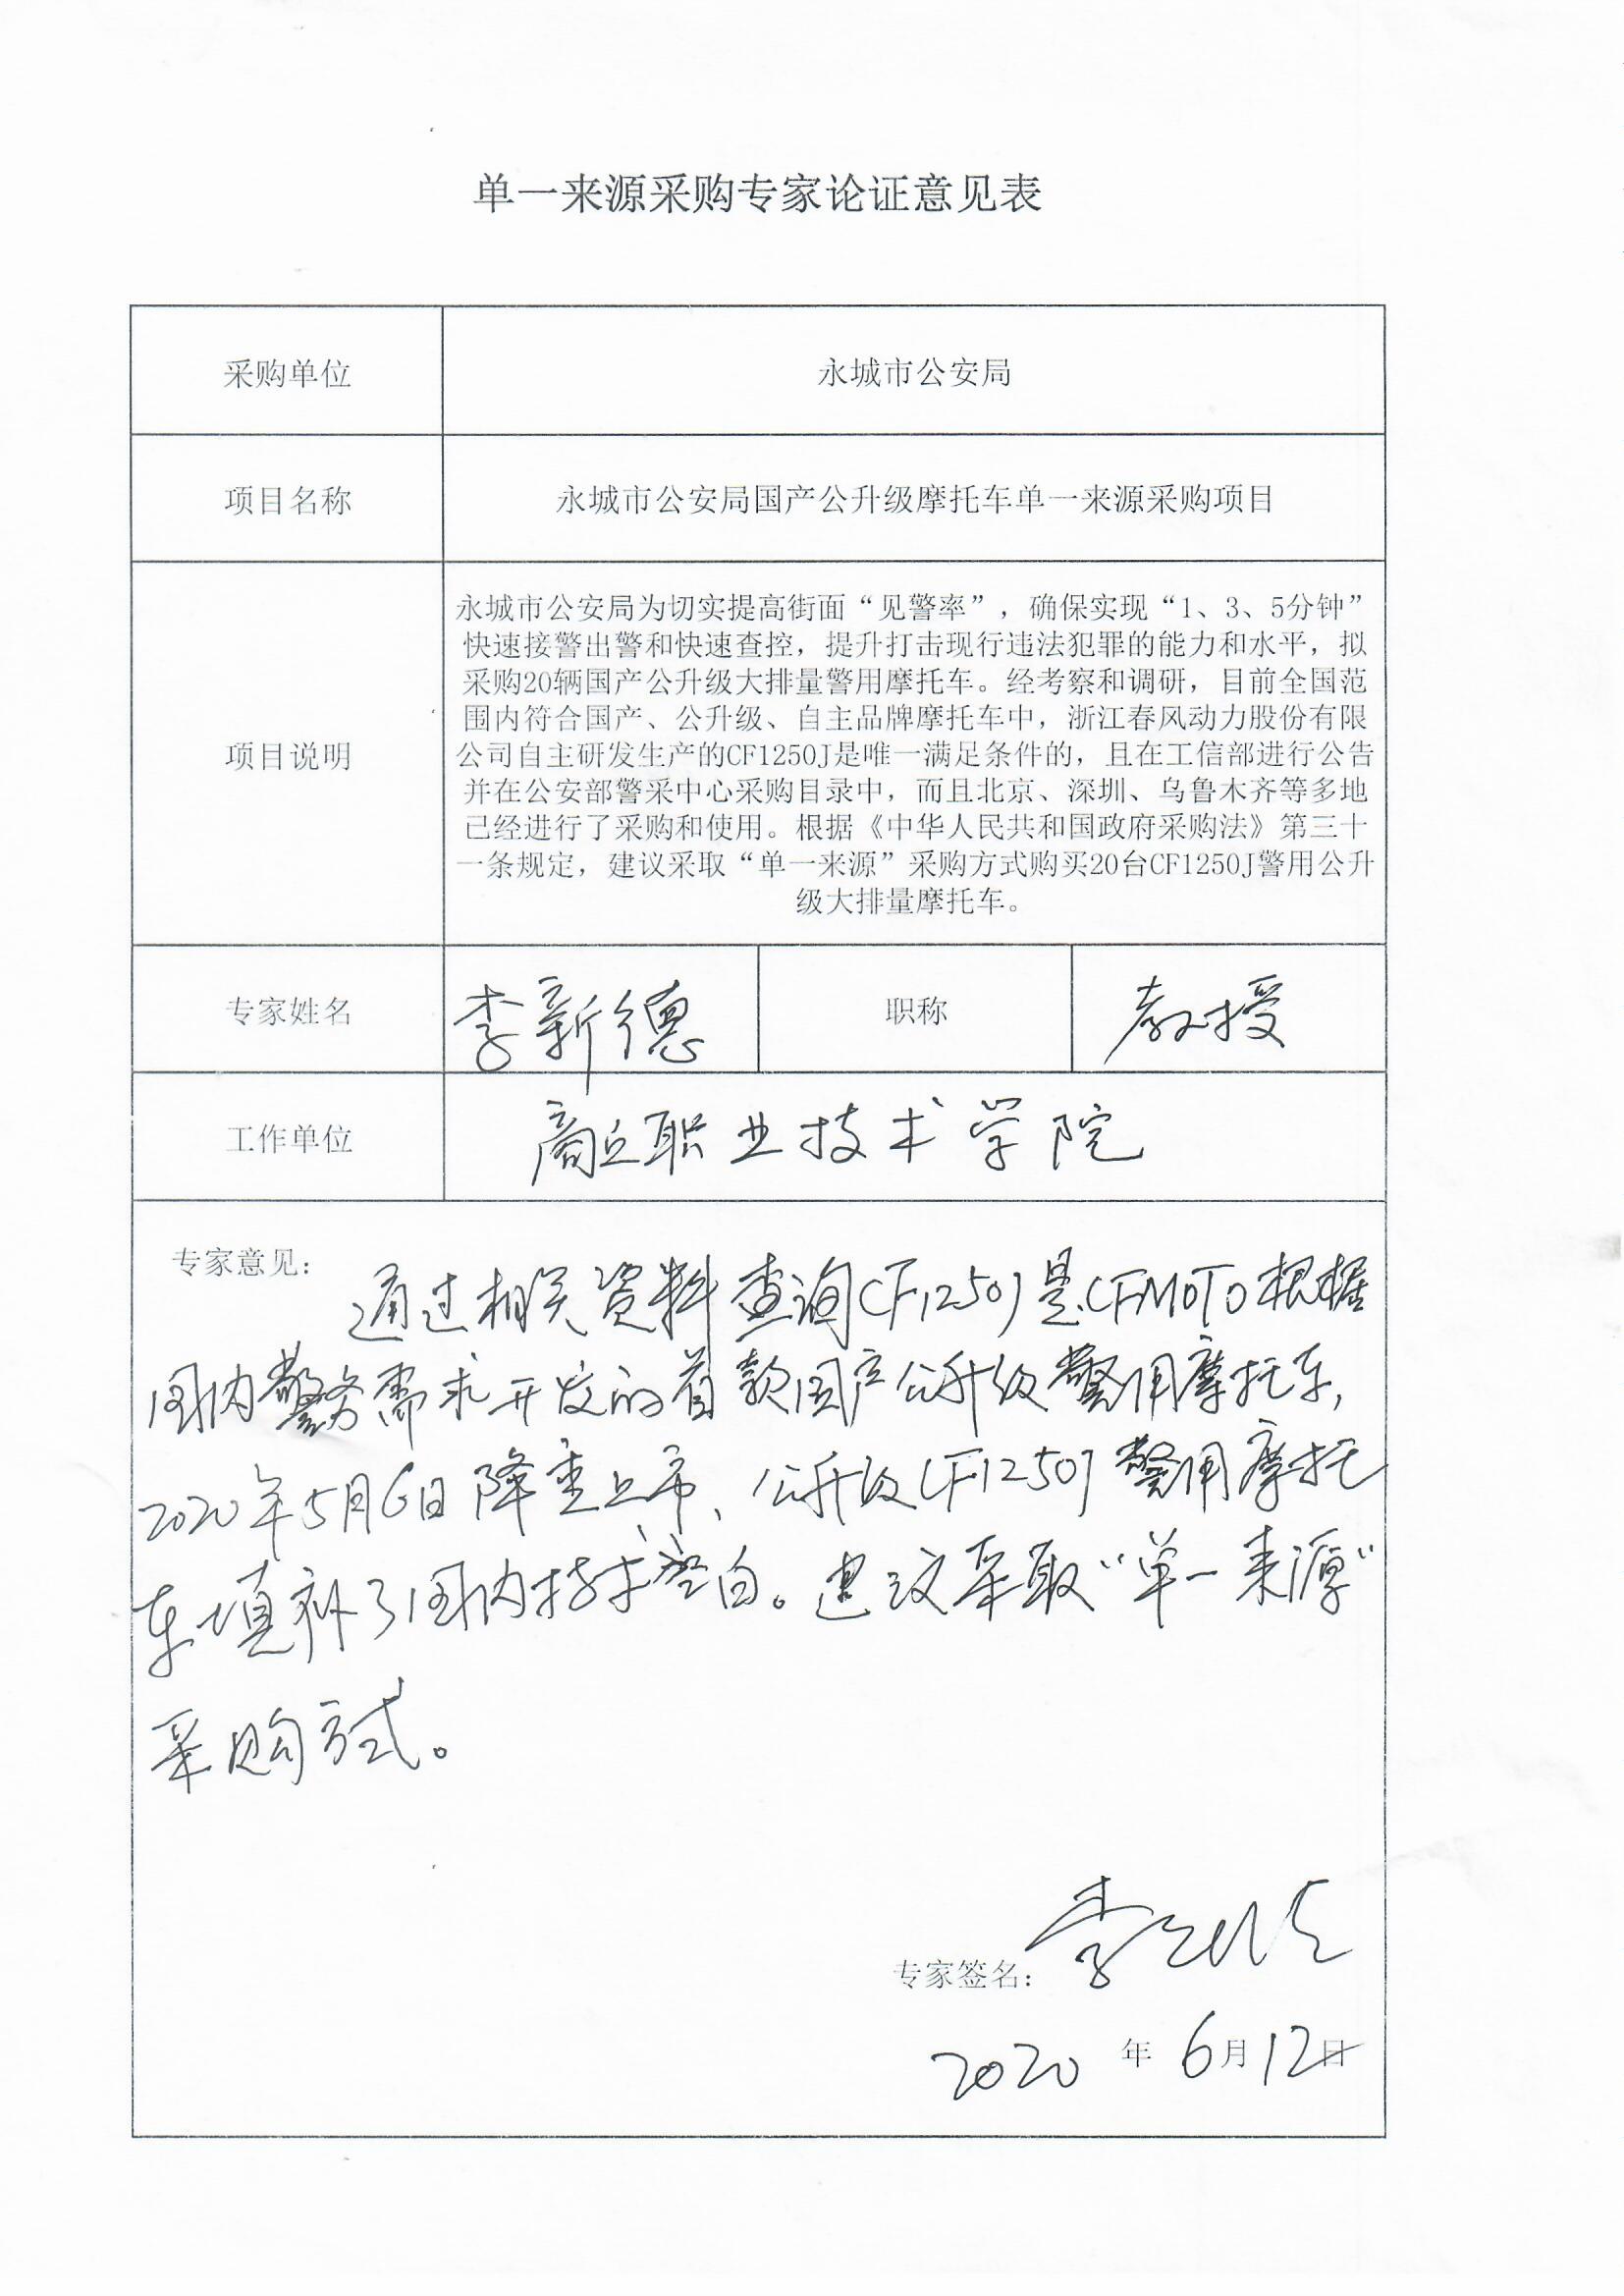 单一来源采购专家论证意见表
采购单位
永城市公安局
项目名称
永城市公安局国产公升级摩托车单一来源采购项目
项目说明
永城市公安局为切实提高街面“见警率”，确保实现“1、3、5分钟”
快速接警出警和快速查控，提升打击现行违法犯罪的能力和水平，拟
采购20辆国产公升级大排量警用摩托车。经考察和调研，目前全国范
围内符合国产、公升级、自主品牌摩托车中，浙江春风动力股份有限
公司自主研发生产的CF1250J是唯一满足条件的，且在工信部进行公告
并在公安部警采中心采购目录中，而且北京、深圳、乌鲁木齐等多地
已经进行了采购和使用。根据《中华人民共和国政府采购法》第三十
一条规定，建议采取“单一来源”采购方式购买20台CF1250J警用公升
级大排量摩托车。
专家姓名
李新德
职称
教授
工作单位
商丘职业技术学院
专家意见：
通过相关资料查询CF1250J是CFMOTO根据
国内警务需求开发的首款国产公升级警用摩托车，
2020年5月6日隆重上市、公升级CF1250J警用摩托
车填补了国内技术空白。建议采取“单一来源”
采购方式。
专家签名：李新德
2020 年 6月12日